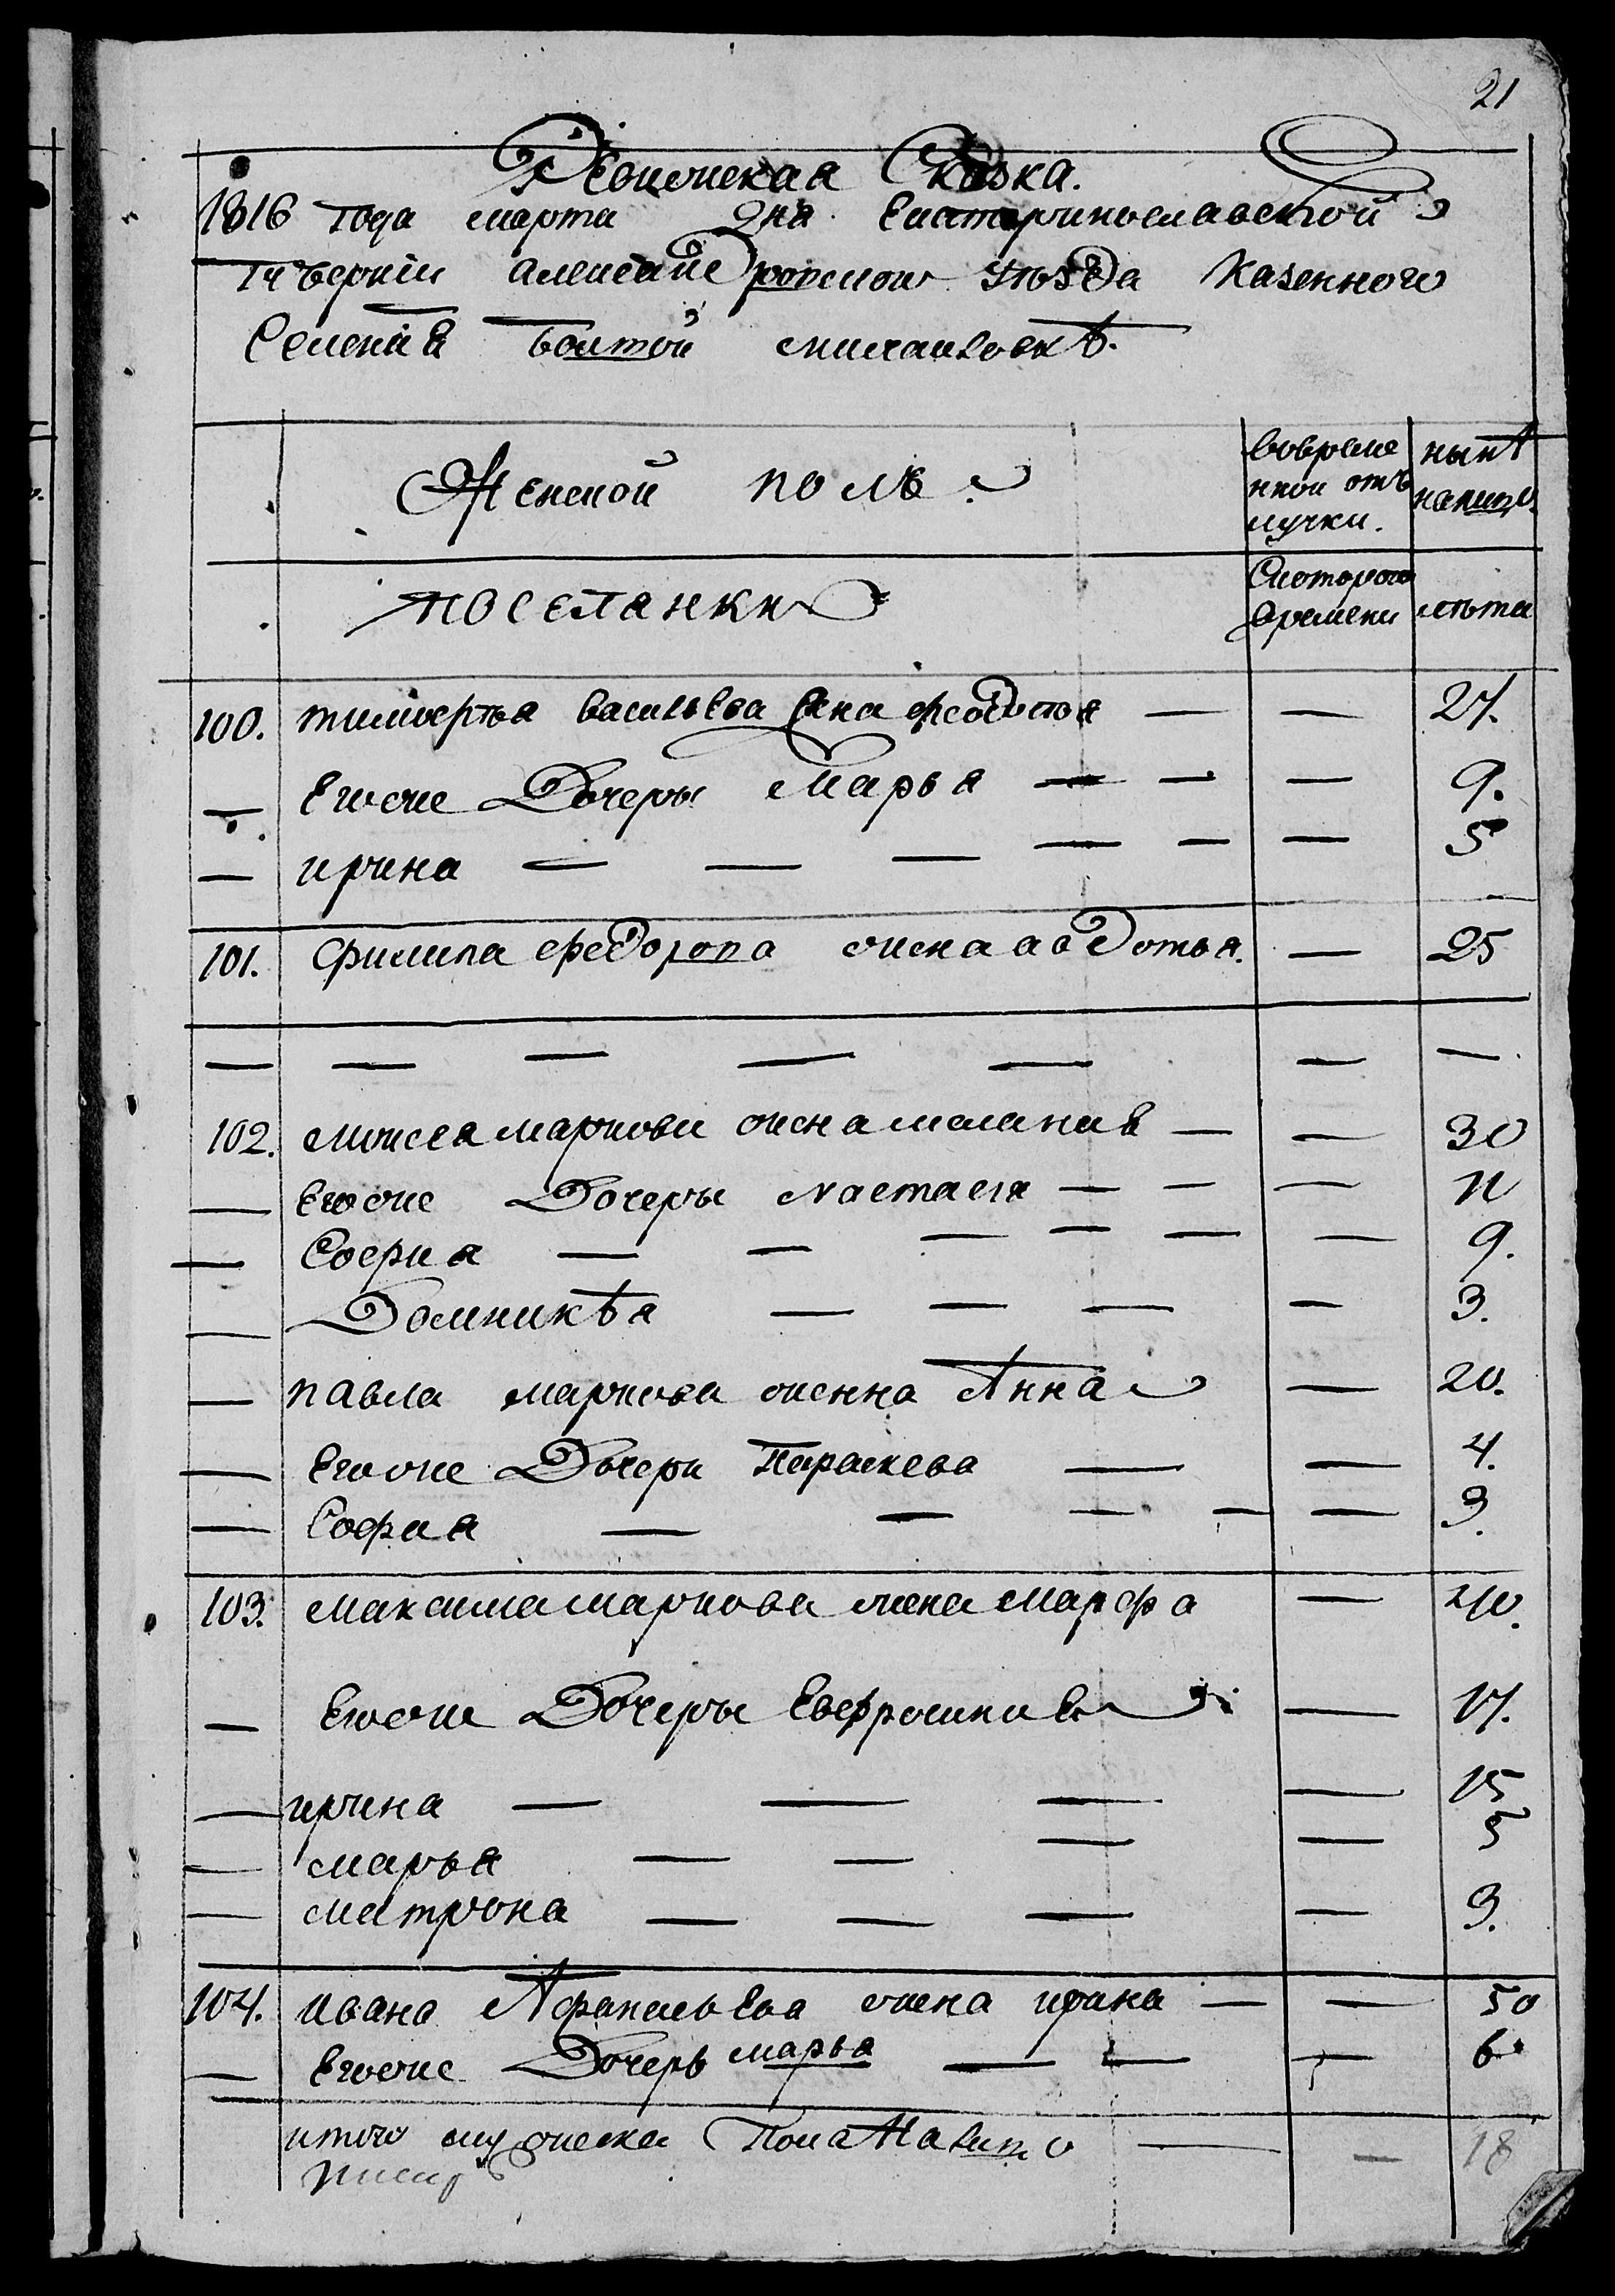 21
Ревижская Сказка.
1816 года марта дня Екатеринославской
Губернiи александровскои уѣзда Казенного
Селенiя болшой михаиловкѣ.
Женской полъ.
вовреме
нной отъ
лучки.
нынѣ
налицо.
поселянки
Скоторого
времени
лѣта
100. тимофея васильева жена федосья — — 27.
— Егоже Дочеры Марья — — — 9.
— ирина — — — — — — 5
101. филипа федорова жена авдотья. — 25
— — — — — — —
102. моисея маркова жена мелания — — 30
— Егоже Дочеры Настасия — — — 11
— София — — — — — — 9.
— Домникѣя — — — — 3.
— павла маркова женна Анна — 20.
— Егоже Дочери Параскева — — 4.
— София — — — — — 3.
103. максима маркова жена марфа — 40.
— Егоже Дочеры Евфросиния — 17.
— ирина — — — — 15
— марья — — — — 5
— матрона — — — — 3.
104. ивана Афанасьева жена ирина — — 50
— Егоже Дочерь марья — — — 6
итого женска Пола На лицо — — 18